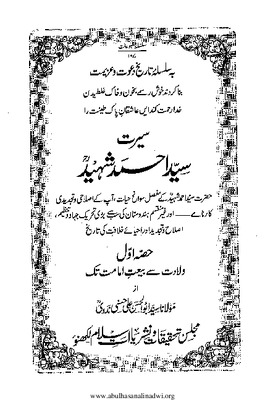 سلسلۂ مطبوعات
۱۶۸
بہ سلسلۂ تاریخ دعوت و عزیمت
بنا کردند خوش رسمے بخون و خاک غلطیدن
خدا رحمت کند ایں عاشقان پاک طینت را
سیرت
سید احمد شہیدؒ
حضرت سید احمد شہیدؒ کے مفصل سوانح حیات، آپ کے اصلاحی و تجدیدی
کارنامے اور غیر منقسم ہندوستان کی سب سے بڑی تحریک جہاد و تنظیم،
اصلاح و تجدید اور احیائے خلافت کی تاریخ
حصہ اول
ولادت سے بیعت امامت تک
از
مولانا سید ابوالحسن علی حسنی ندوی
مجلس تحقیقات و نشریات اسلام لکھنؤ
www.abulhasanalinadwi.org